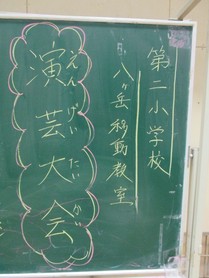 第二小学校
八ヶ岳移動教室
演芸大会
えんげいたいかい